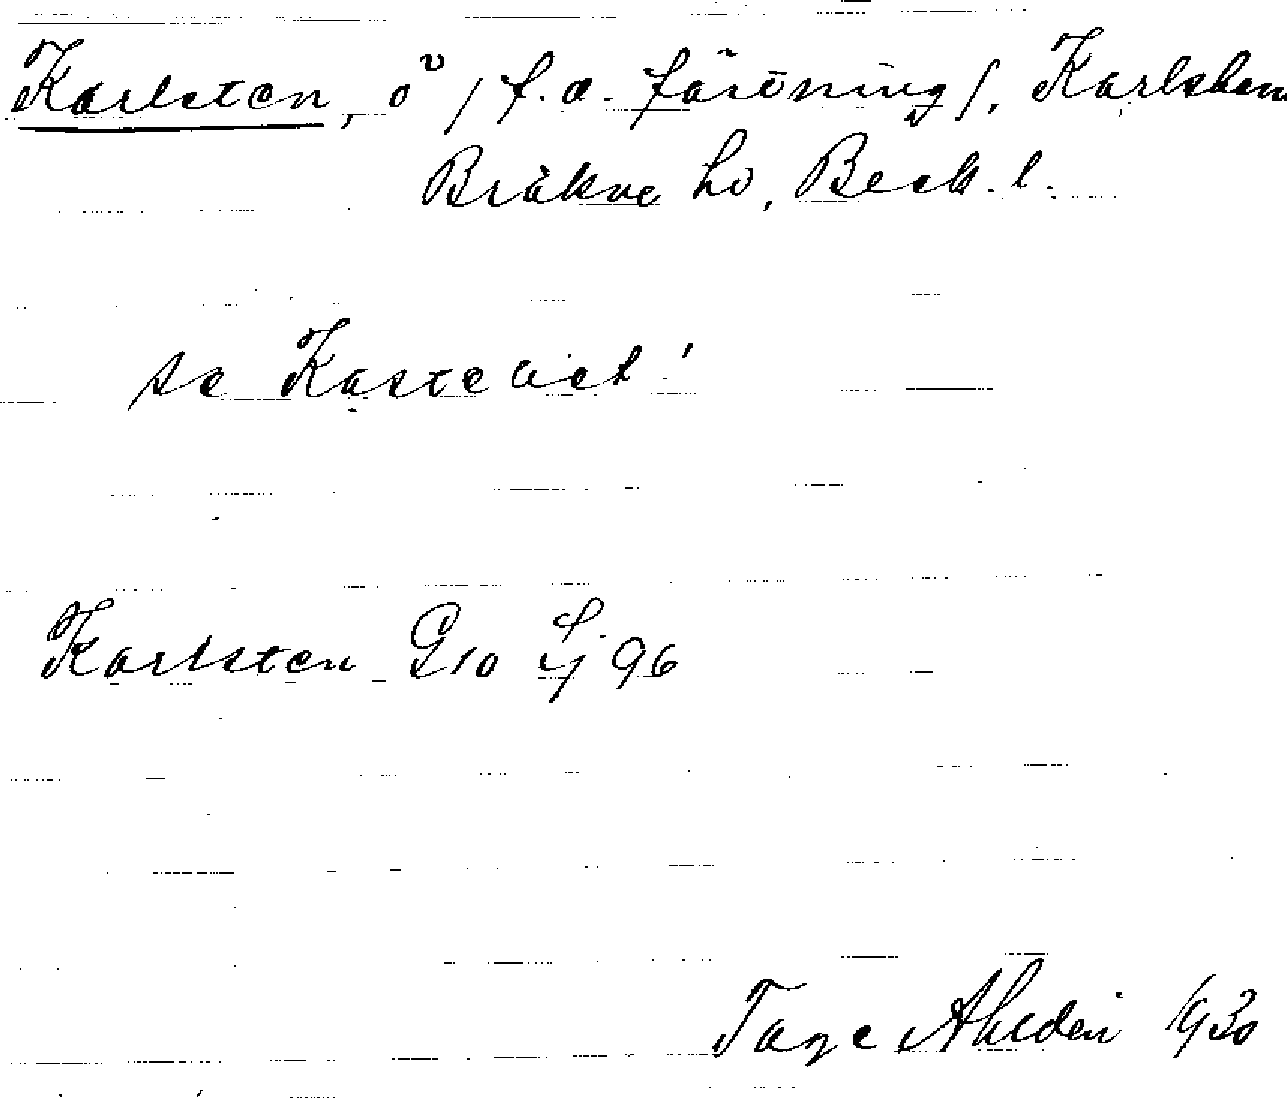 Karlsten, ö / f.d. fästning /, Karlshamn
Bräkne hd, Blek. l.
se Kastellet!
Karlsten G10 Lj 96
Tage Ahldén 1930